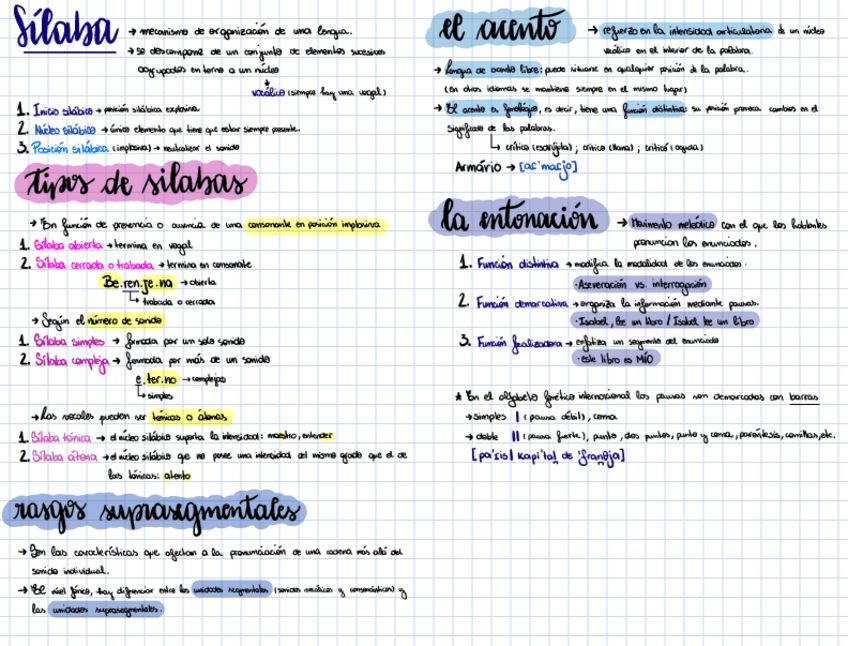 Sílaba → mecanismo de organización de una lengua.
→ se descompone de un conjunto de elementos sucesivos
agrupados en torno a un núcleo
vocálico (siempre hay una vocal)
1. Inicio silábico → posición silábica explosiva.
2. Núcleo silábico → único elemento que tiene que estar siempre presente.
3. Posición silábica (implosiva) → neutralizar el sonido
tipos de sílabas
→ En función de presencia o ausencia de una consonante en posición implosiva
1. Sílaba abierta → termina en vocal
2. Sílaba cerrada o trabada → termina en consonante
Be.ren.je.na → abierta
→ trabada o cerrada
→ Según el número de sonido
1. Sílaba simples → formada por un solo sonido
2. Sílaba compleja → formada por más de un sonido
e.ter.no → complejas
→ simples
→ Las vocales pueden ser tónicas o átonas
1. Sílaba tónica → el núcleo silábico soporta la intensidad: maestro, entender
2. Sílaba átona → el núcleo silábico que no posee una intensidad del mismo grado que el de
las tónicas: atento
rasgos suprasegmentales
→ Son las características que afectan a la pronunciación de una cadena más allá del
sonido individual.
→ El nivel fónico, hay diferenciar entre las unidades segmentales (sonidos vocálicos y consonánticos) y
las unidades suprasegmentales.
el acento → refuerzo en la intensidad articulatoria de un núcleo
vocálico en el interior de la palabra.
→ Lengua de acento libre: puede situarse en cualquier posición de la palabra.
(en otros idiomas se mantiene siempre en el mismo lugar)
→ El acento es fonológico, es decir, tiene una función distintiva: su posición provoca cambios en el
significado de las palabras.
→ crítica (esdrújula); critica (llana); criticó (aguda)
Armário → [aɾˈmaɾjo]
la entonación → Movimiento melódico con el que los hablantes
pronuncian los enunciados.
1. Función distintiva → modifica la modalidad de los enunciados.
· Aseveración vs. interrogación
2. Función demarcativa → organiza la información mediante pausas.
· Isabel, lee un libro / Isabel lee un libro
3. Función focalizadora → enfatiza un segmento del enunciado
· este libro es MÍO
* En el alfabeto fonético internacional las pausas son demarcadas con barras
→ simples | (pausa débil), coma
→ doble || (pausa fuerte), punto, dos puntos, punto y coma, paréntesis, comillas, etc.
[paˈɾis | kapiˈtal de ˈfranθja]